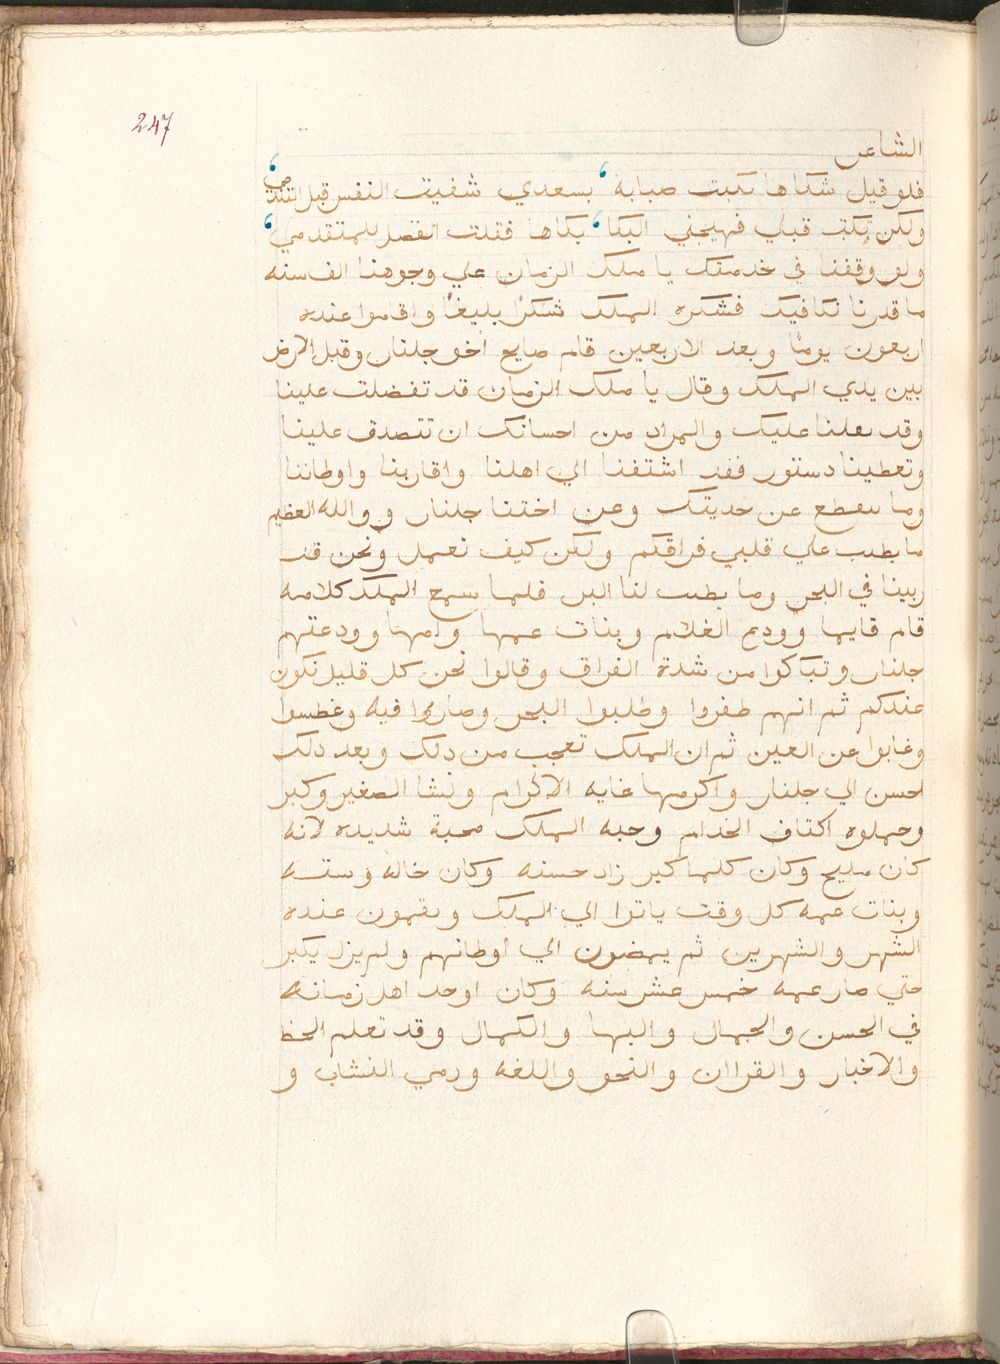 247
الشاعر
فلو قبل شكاها بكت صبابة ، بسعدي شفيت النفس قبل التندمي ،
ولكن بكت قبلي فهيجني البكا ، بكاها فقلت الفضل للمتقدمي ،
ولو وقفنا في خدمتك يا ملك الزمان علي وجوهنا الف سنه
ما قدرنا نكافيك فشكره الملك شكرًا بليغًا واقاموا عنده
اربعون يومًا وبعد الاربعين قام صايح اخو جلنار وقبل الارض
بين يدي الملك وقال يا ملك الزمان قد تفضلت علينا
وقد ثقلنا عليك والمراد من احسانك ان تتصدق علينا
وتعطينا دستور فقد اشتقنا الي اهلنا واقاربنا واوطاننا
وما ننقطع عن خدمتك وعن اختنا جلنار ووالله العظيم
ما يطيب علي قلبي فراقكم ولكن كيف نعمل ونحن قد
ربينا في البحر وما يطيب لنا البر فلما سمع الملك كلامه
قام قايما وودع الغلام وبنات عمها وامها وودعتهم
جلنار وتباكوا من شدة الفراق وقالوا نحن كل قليل نكون
عندكم ثم انهم طفروا وطلبوا البحر وصاروا فيه وغطسوا
وغابوا عن العين ثم ان الملك تعجب من دلك وبعد دلك
احسن الي جلنار واكرمها غايه الاكرام ونشا الصغير وكبر
وحملوه اكتاف الخدام وحبه الملك محبة شديده لانه
كان مليح وكان كلما كبر زاد حسنه وكان خاله وسته
وبنات عمه كل وقت ياتوا الي الملك ويقيمون عنده
الشهر والشهرين ثم يمضون الي اوطانهم ولم يزل يكبر
حتي صار عمه خمس عشر سنه وكان اوحد اهل زمانه
في الحسن والجمال والبها والكمال وقد تعلم الخط
والاخبار والقراان والنحو واللغه ورمي النشاب و